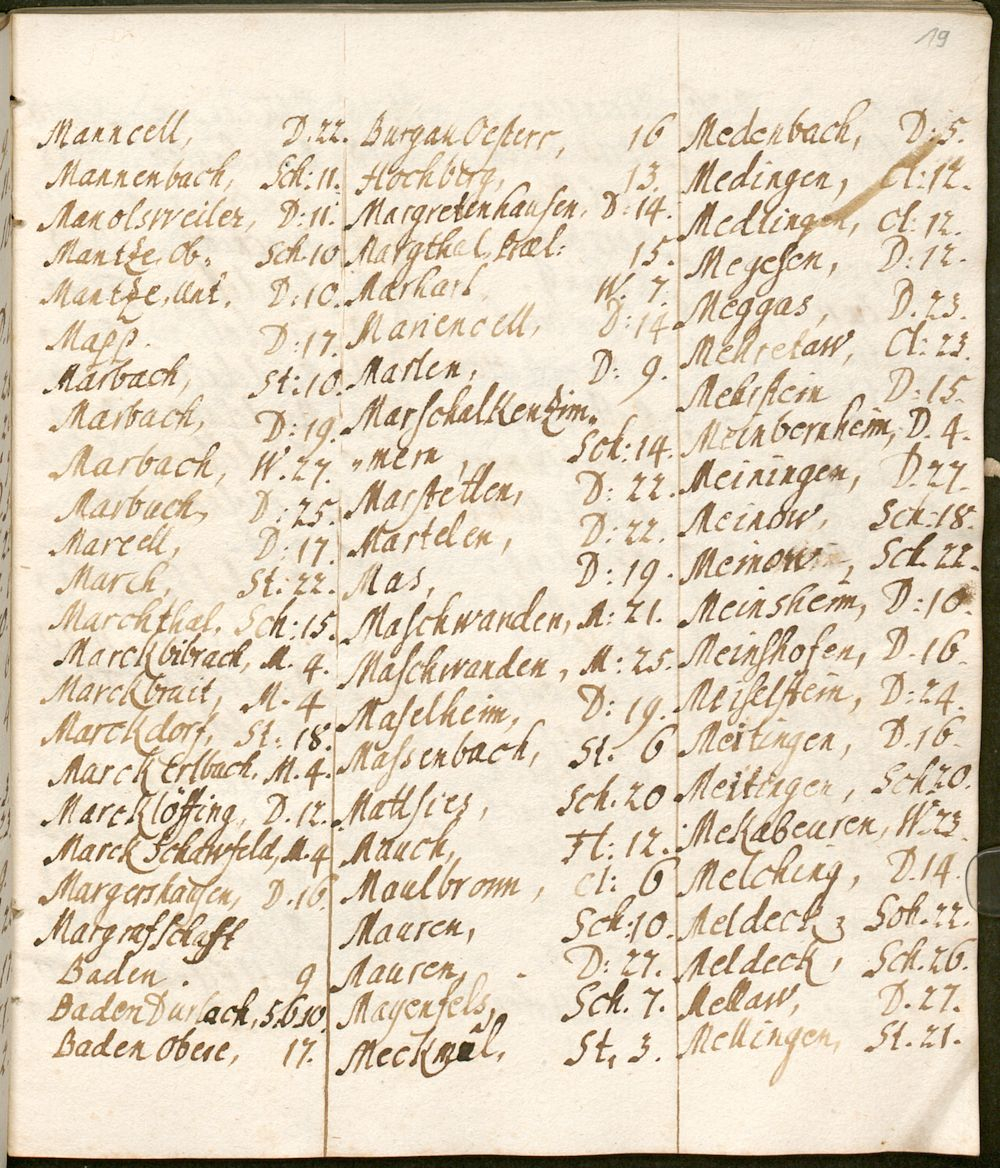 19
Manncell, D:22.
Mannenbach, Sch:11.
Manolsweiler, D:11.
Mantze, Ob. Sch.10
Mantze, Unt. D:10.
Mapp. D:17.
Marbach, St:10.
Marbach, D:19.
Marbach, W.27.
Marbuch, D:25.
Marcell, D:17.
March, St:22.
Marchthal, Sch:15.
Marckbibrach, M.4.
Marckbrait, M.4
Marckdorf, St:18.
Marck Erlbach, M.4.
Marcklöffing, D.12.
Marck Schawfeld, M.4
Margershausen, D.16.
Margrafschafft
Baden. 9
Baden Durlach, 5.6.10.
Baden Obere, 17.
Burgau Oesterr, 16
Hochberg, 13.
Margretenhausen, D:14.
Margthal, Præl: 15.
Marhart W.7.
Mariencell, D:14
Marlen, D:9.
Marschalkenzim„
„mern, Sch:14.
Marstetten, D:22.
Martelen, D:22.
Mas, D:19.
Maschwanden, M:21.
Maschwanden, M:25.
Maselheim, D:19.
Massenbach, St.6
Matthsies, Sch.20
Mauch, H:12.
Maulbronn, Cl:6
Mauren, Sch:10.
Mauren, D:27.
Mayenfels, Sch.7.
Meckmul, St.3.
Medenbach, D:5.
Medingen, Cl:12.
Medlingen, Cl:12.
Megesen, D:12.
Meggas, D.23.
Mehretaw, Cl:23.
Mehrstein D:15.
Meinbernheim, D.4.
Meiningen, D.27.
Meinow, Sch:18.
Meinow, Sch.22.
Meinsheim, D:10.
Meinshofen, D.16.
Meiselstein, D:24.
Meitingen, D.16.
Meitingen, Sch20.
Mekabeuren, W.23.
Melching, D.14.
Meldeck, Sch.22.
Meldeck, Sch.26.
Mellaw, D.27.
Mellingen, St.21.